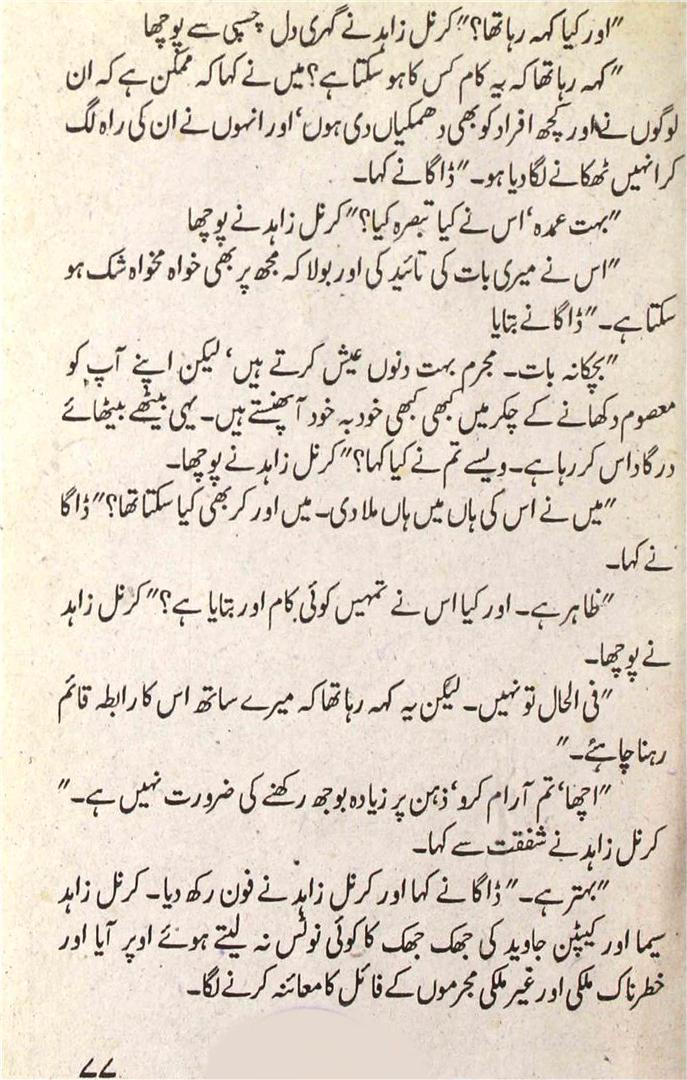 "اور کیا کہہ رہا تھا؟" کرنل زاہد نے گہری دل چسپی سے پوچھا
"کہہ رہا تھا کہ یہ کام کس کا ہو سکتا ہے؟ میں نے کہا کہ ممکن ہے کہ ان
لوگوں نے اور کچھ افراد کو بھی دھمکیاں دی ہوں، اور انہوں نے ان کی راہ لگ
کر انہیں ٹھکانے لگا دیا ہو۔" ڈاگا نے کہا۔
"بہت عمدہ، اس نے کیا تبصرہ کیا؟" کرنل زاہد نے پوچھا
"اس نے میری بات کی تائید کی اور بولا کہ مجھ پر بھی خواہ مخواہ شک ہو
سکتا ہے۔" ڈاگا نے بتایا
"بچکانہ بات۔ مجرم بہت دنوں عیش کرتے ہیں، لیکن اپنے آپ کو
معصوم دکھانے کے چکر میں کبھی کبھی خود بہ خود آ پھنستے ہیں۔ یہی بیٹھے بیٹھائے
درگاداس کر رہا ہے۔ ویسے تم نے کیا کہا؟" کرنل زاہد نے پوچھا۔
"میں نے اس کی ہاں میں ہاں ملا دی۔ میں اور کر بھی کیا سکتا تھا؟" ڈاگا
نے کہا۔
"ظاہر ہے۔ اور کیا اس نے تمہیں کوئی کام اور بتایا ہے؟" کرنل زاہد
نے پوچھا۔
"فی الحال تو نہیں۔ لیکن یہ کہہ رہا تھا کہ میرے ساتھ اس کا رابطہ قائم
رہنا چاہئے۔"
"اچھا، تم آرام کرو، ذہن پر زیادہ بوجھ رکھنے کی ضرورت نہیں ہے۔"
کرنل زاہد نے شفقت سے کہا۔
"بہتر ہے۔" ڈاگا نے کہا اور کرنل زاہد نے فون رکھ دیا۔ کرنل زاہد
سیما اور کیپٹن جاوید کی جھک جھک کا کوئی نوٹس نہ لیتے ہوئے اوپر آیا اور
خطرناک ملکی اور غیر ملکی مجرموں کے فائل کا معائنہ کرنے لگا۔
۷۷